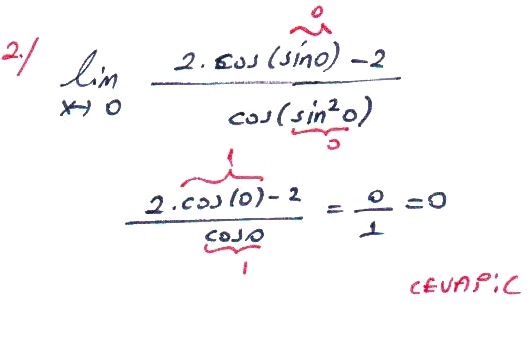 0
2./ lim x→0 2.cos(sin0)-2 / cos(sin²0)
0
1
2.cos(0)-2 / cos0 = 0/1 = 0
1
CEVAP:C